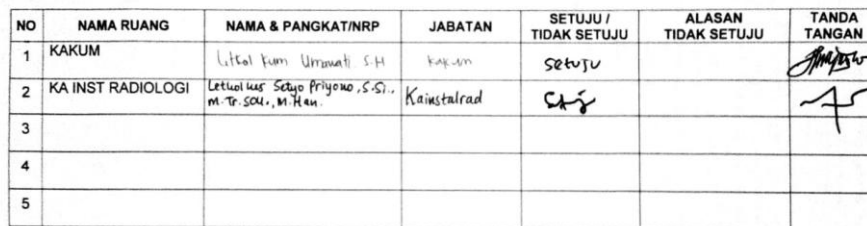 NO NAMA RUANG NAMA & PANGKAT/NRP JABATAN SETUJU / TIDAK SETUJU ALASAN TIDAK SETUJU TANDA TANGAN
1 KAKUM Letkol Kum S.H Kakum setuju
2 KA INST RADIOLOGI Letkol kes Setyo Priyono, S.Si.,
M.Tr.SOU., M.Han. Kainstalrad
3
4
5